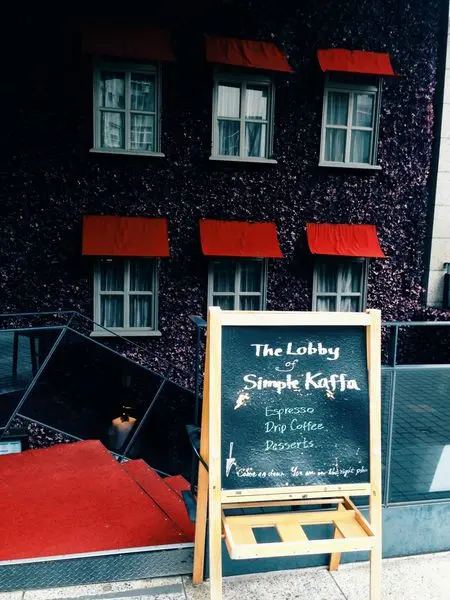 The Lobby
of
Simple Kaffa
Espresso
Drip Coffee
Desserts
down. You are in the right